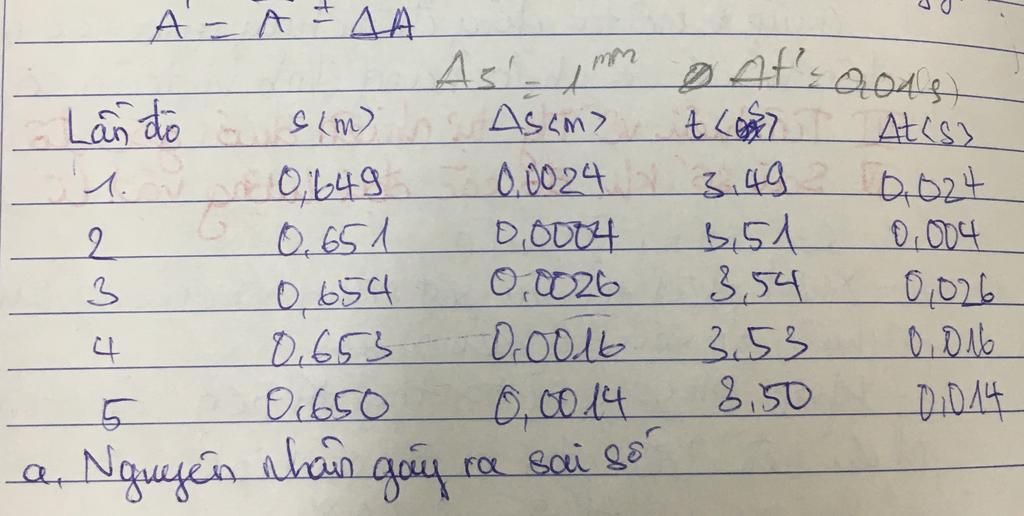 A = A ± ΔA
Δs' = 1mm Δt' = 0,01(s)
Lần đo s<m> Δs<m> t<s> Δt<s>
1. 0,649 0,0024 3,49 0,024
2 0,651 0,0004 3,51 0,004
3 0,654 0,0026 3,54 0,026
4 0,653 0,0016 3,53 0,016
5 0,650 0,0014 3,50 0,014
a, Nguyên nhân gây ra sai số